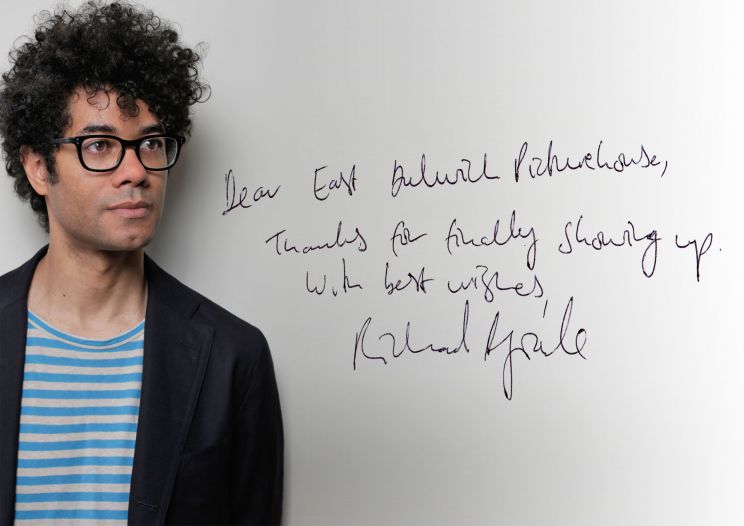 Dear East Dulwich Picturehouse,
Thanks for finally showing up.
With best wishes,
Richard Ayoade